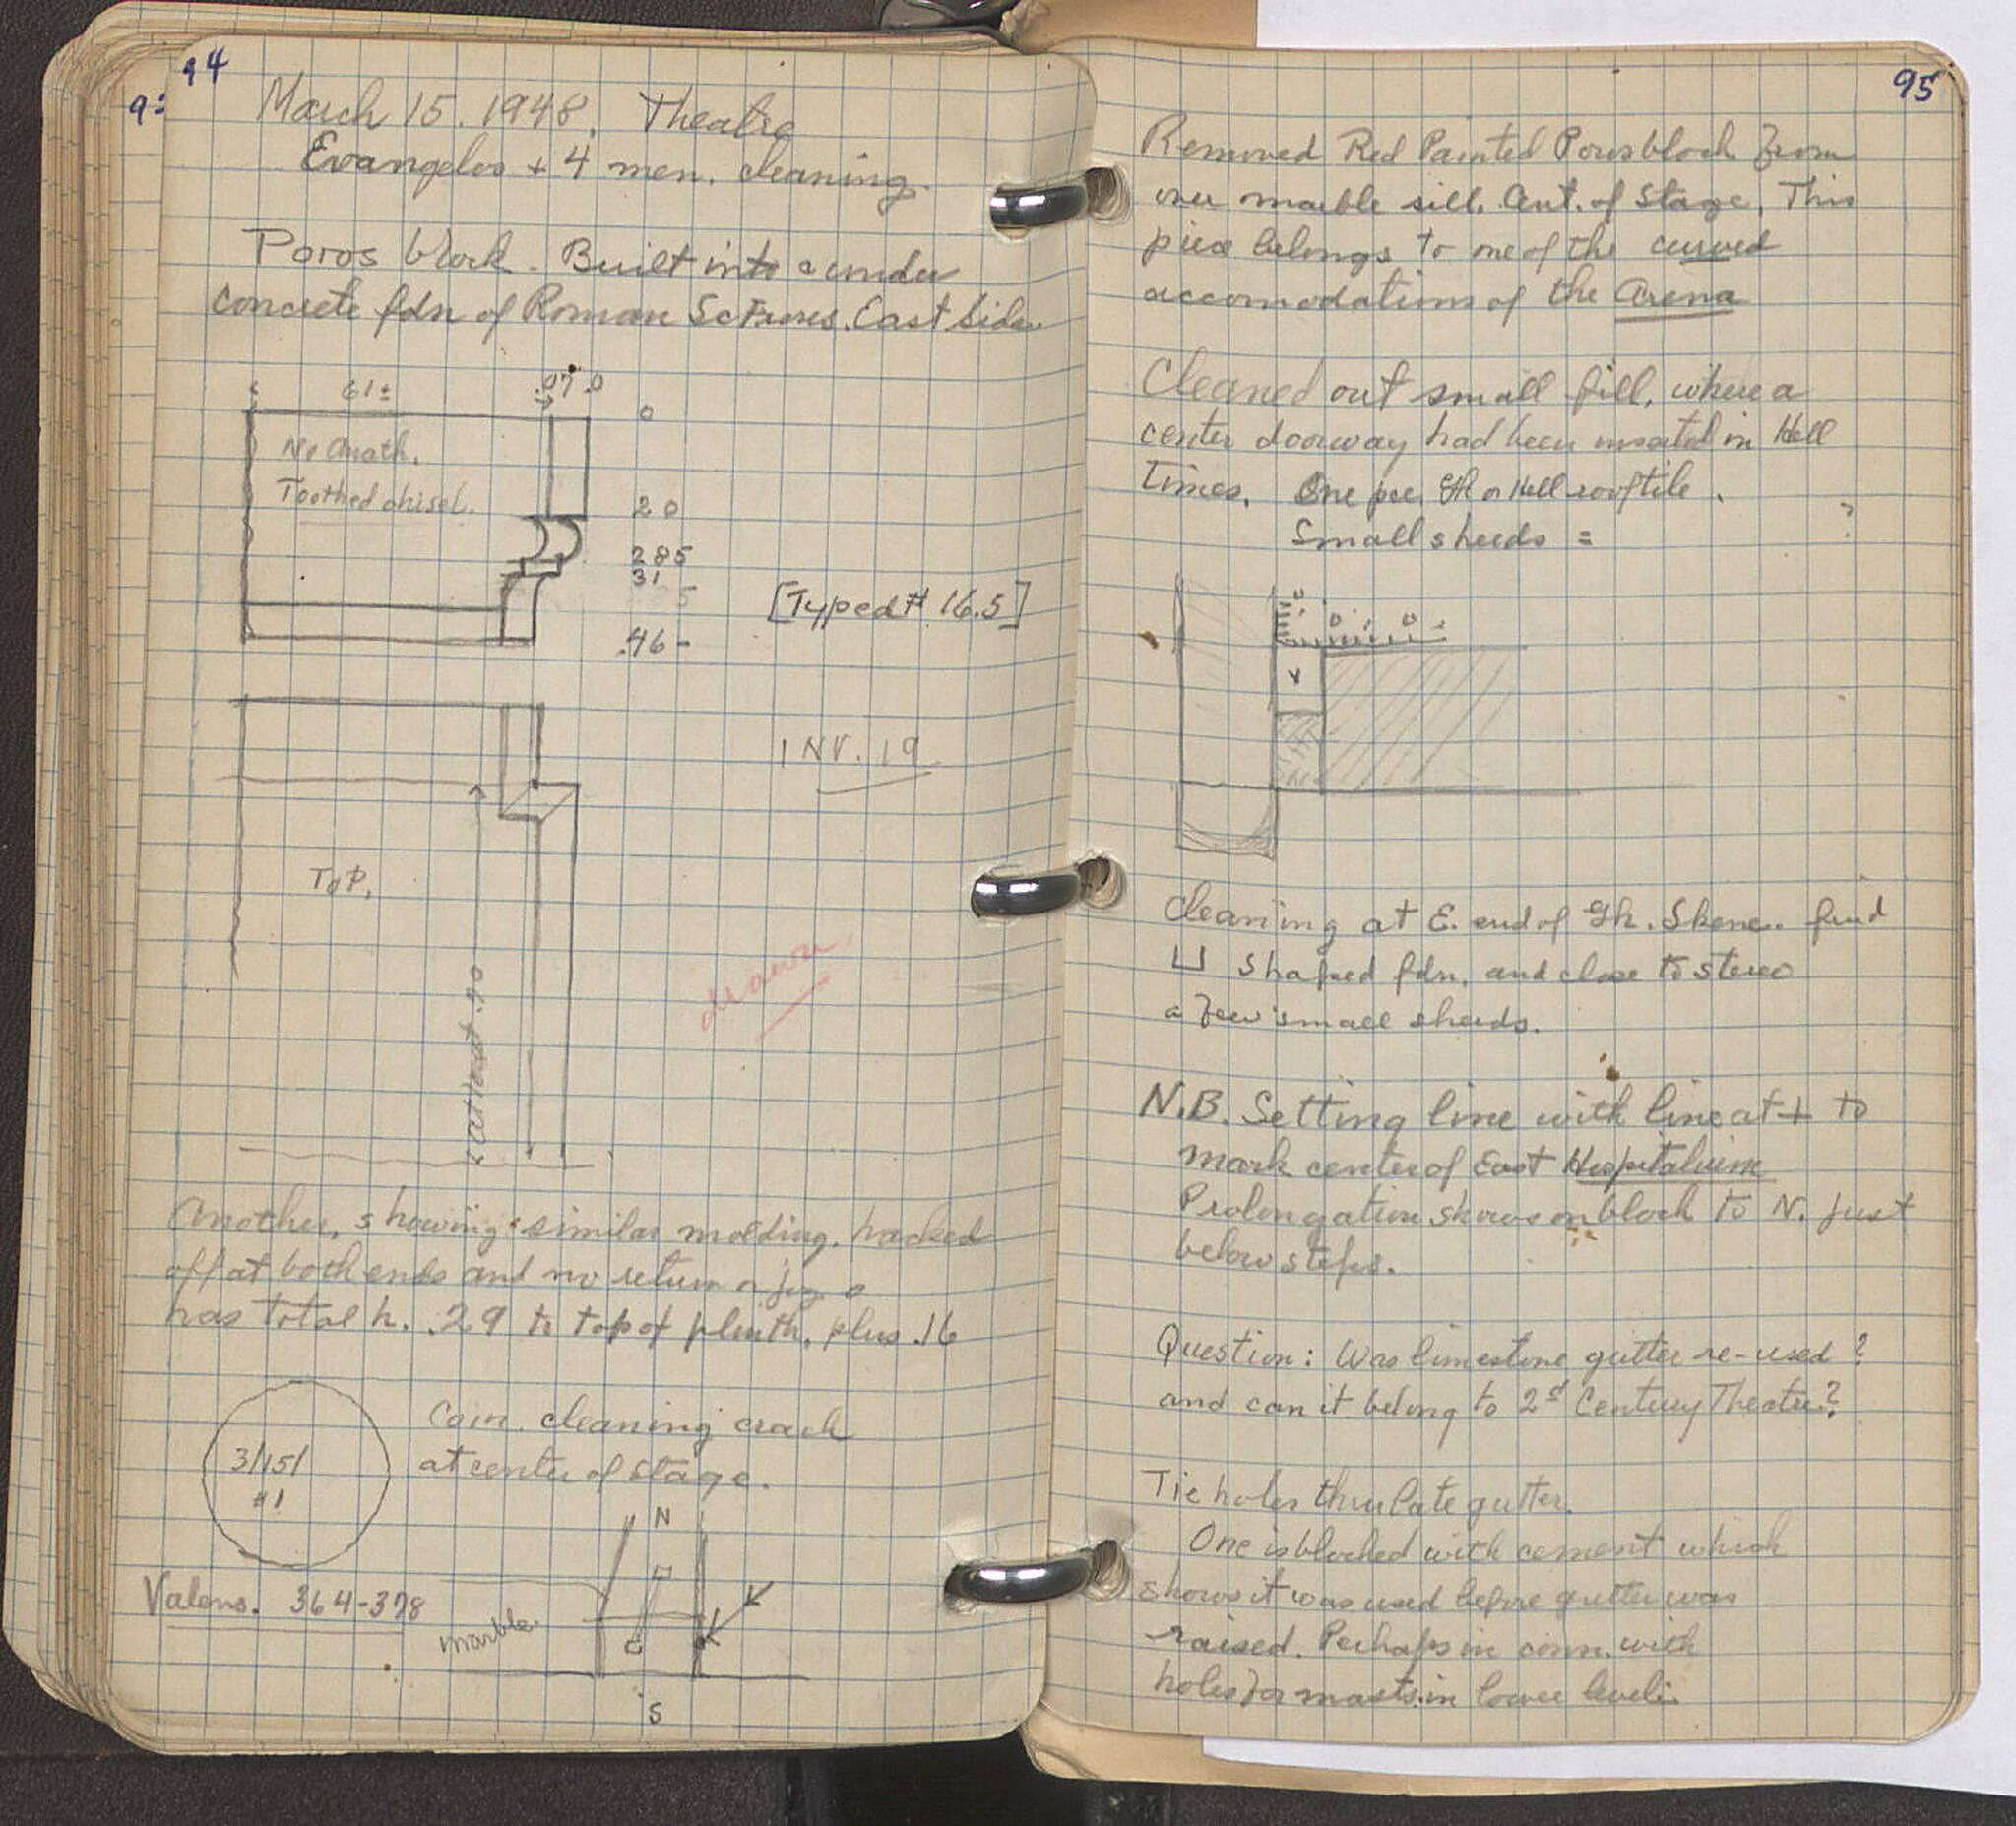 94
March 15. 1948. Theatre
Evangelos + 4 men. cleaning.
Poros block. Built into under
concrete fdn of Roman Sc Frons. East Side
61±
.07
0
0
No Anath.
Toothed chisel.
20
285
31
.46-
[Typed # 16.5]
INV. 19
TOP.
at least .90
drawn.
Another, showing similar molding, hacked
off at both ends and no return
has total h. .29 to top of plinth, plus .16
3/15/
#1
Coin. cleaning crack
at center of stage.
Valens. 364-378
N
marble.
S
95
Removed Red Painted Poros block from
over marble sill. Cent. of Stage. This
piece belongs to one of the curved
accomodations of the Arena
Cleaned out small fill, where a
center doorway had been inserted in Hell
times. One pce. Gk or Hell rooftile.
Small sherds =
?
Cleaning at E. end of Gk. Skene. find
⊔ shaped fdn. and close to stereo
a few small sherds.
N.B. Setting line with line at + to
mark center of East Hospitalium
Prolongation shows on block to N. just
below steps.
Question: Was limestone gutter re-used?
and can it belong to 2d Century Theatre?
Tie holes thru late gutter.
One is blocked with cement which
shows it was used before gutter was
raised. Perhaps in conn. with
holes for masts in lower level.